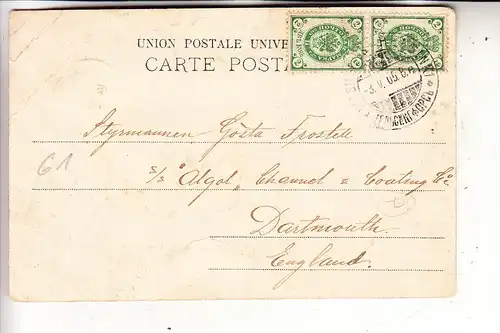 UNION POSTALE UNIVE
CARTE POSTA
2 2
3. V. 05. 8.
Styrmannen Gösta Frostell
s/s "Algol" Channel & Coating Co
Dartmouth
England.
61